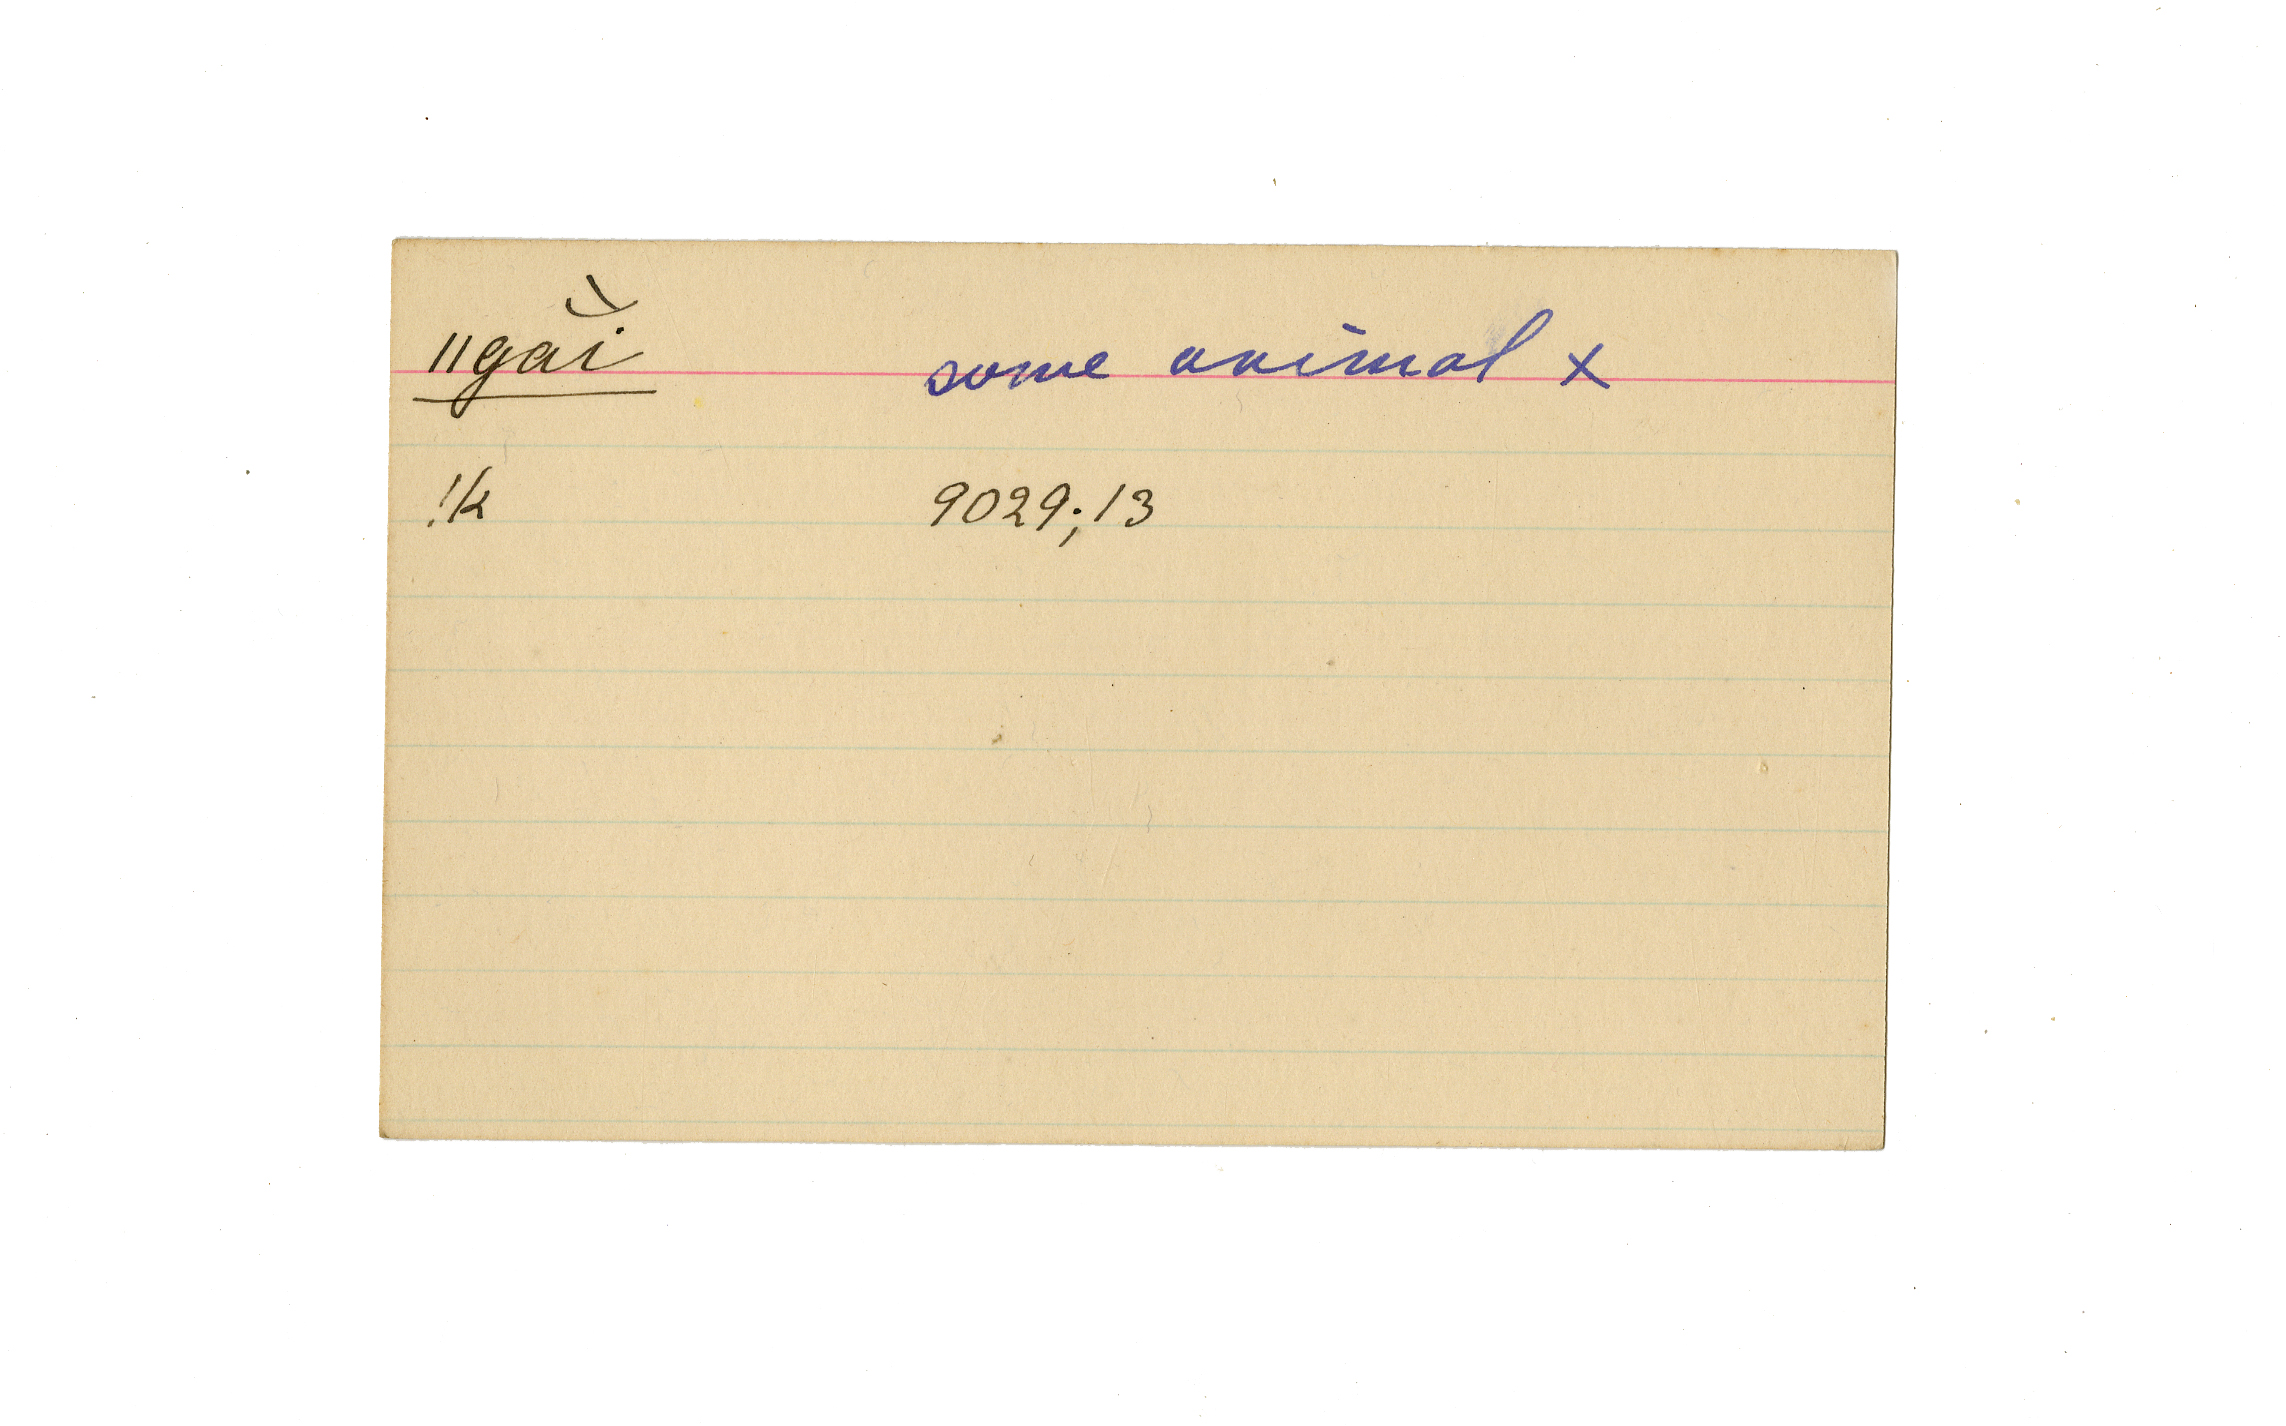 ǁgăì some animal x
!k 9029;13